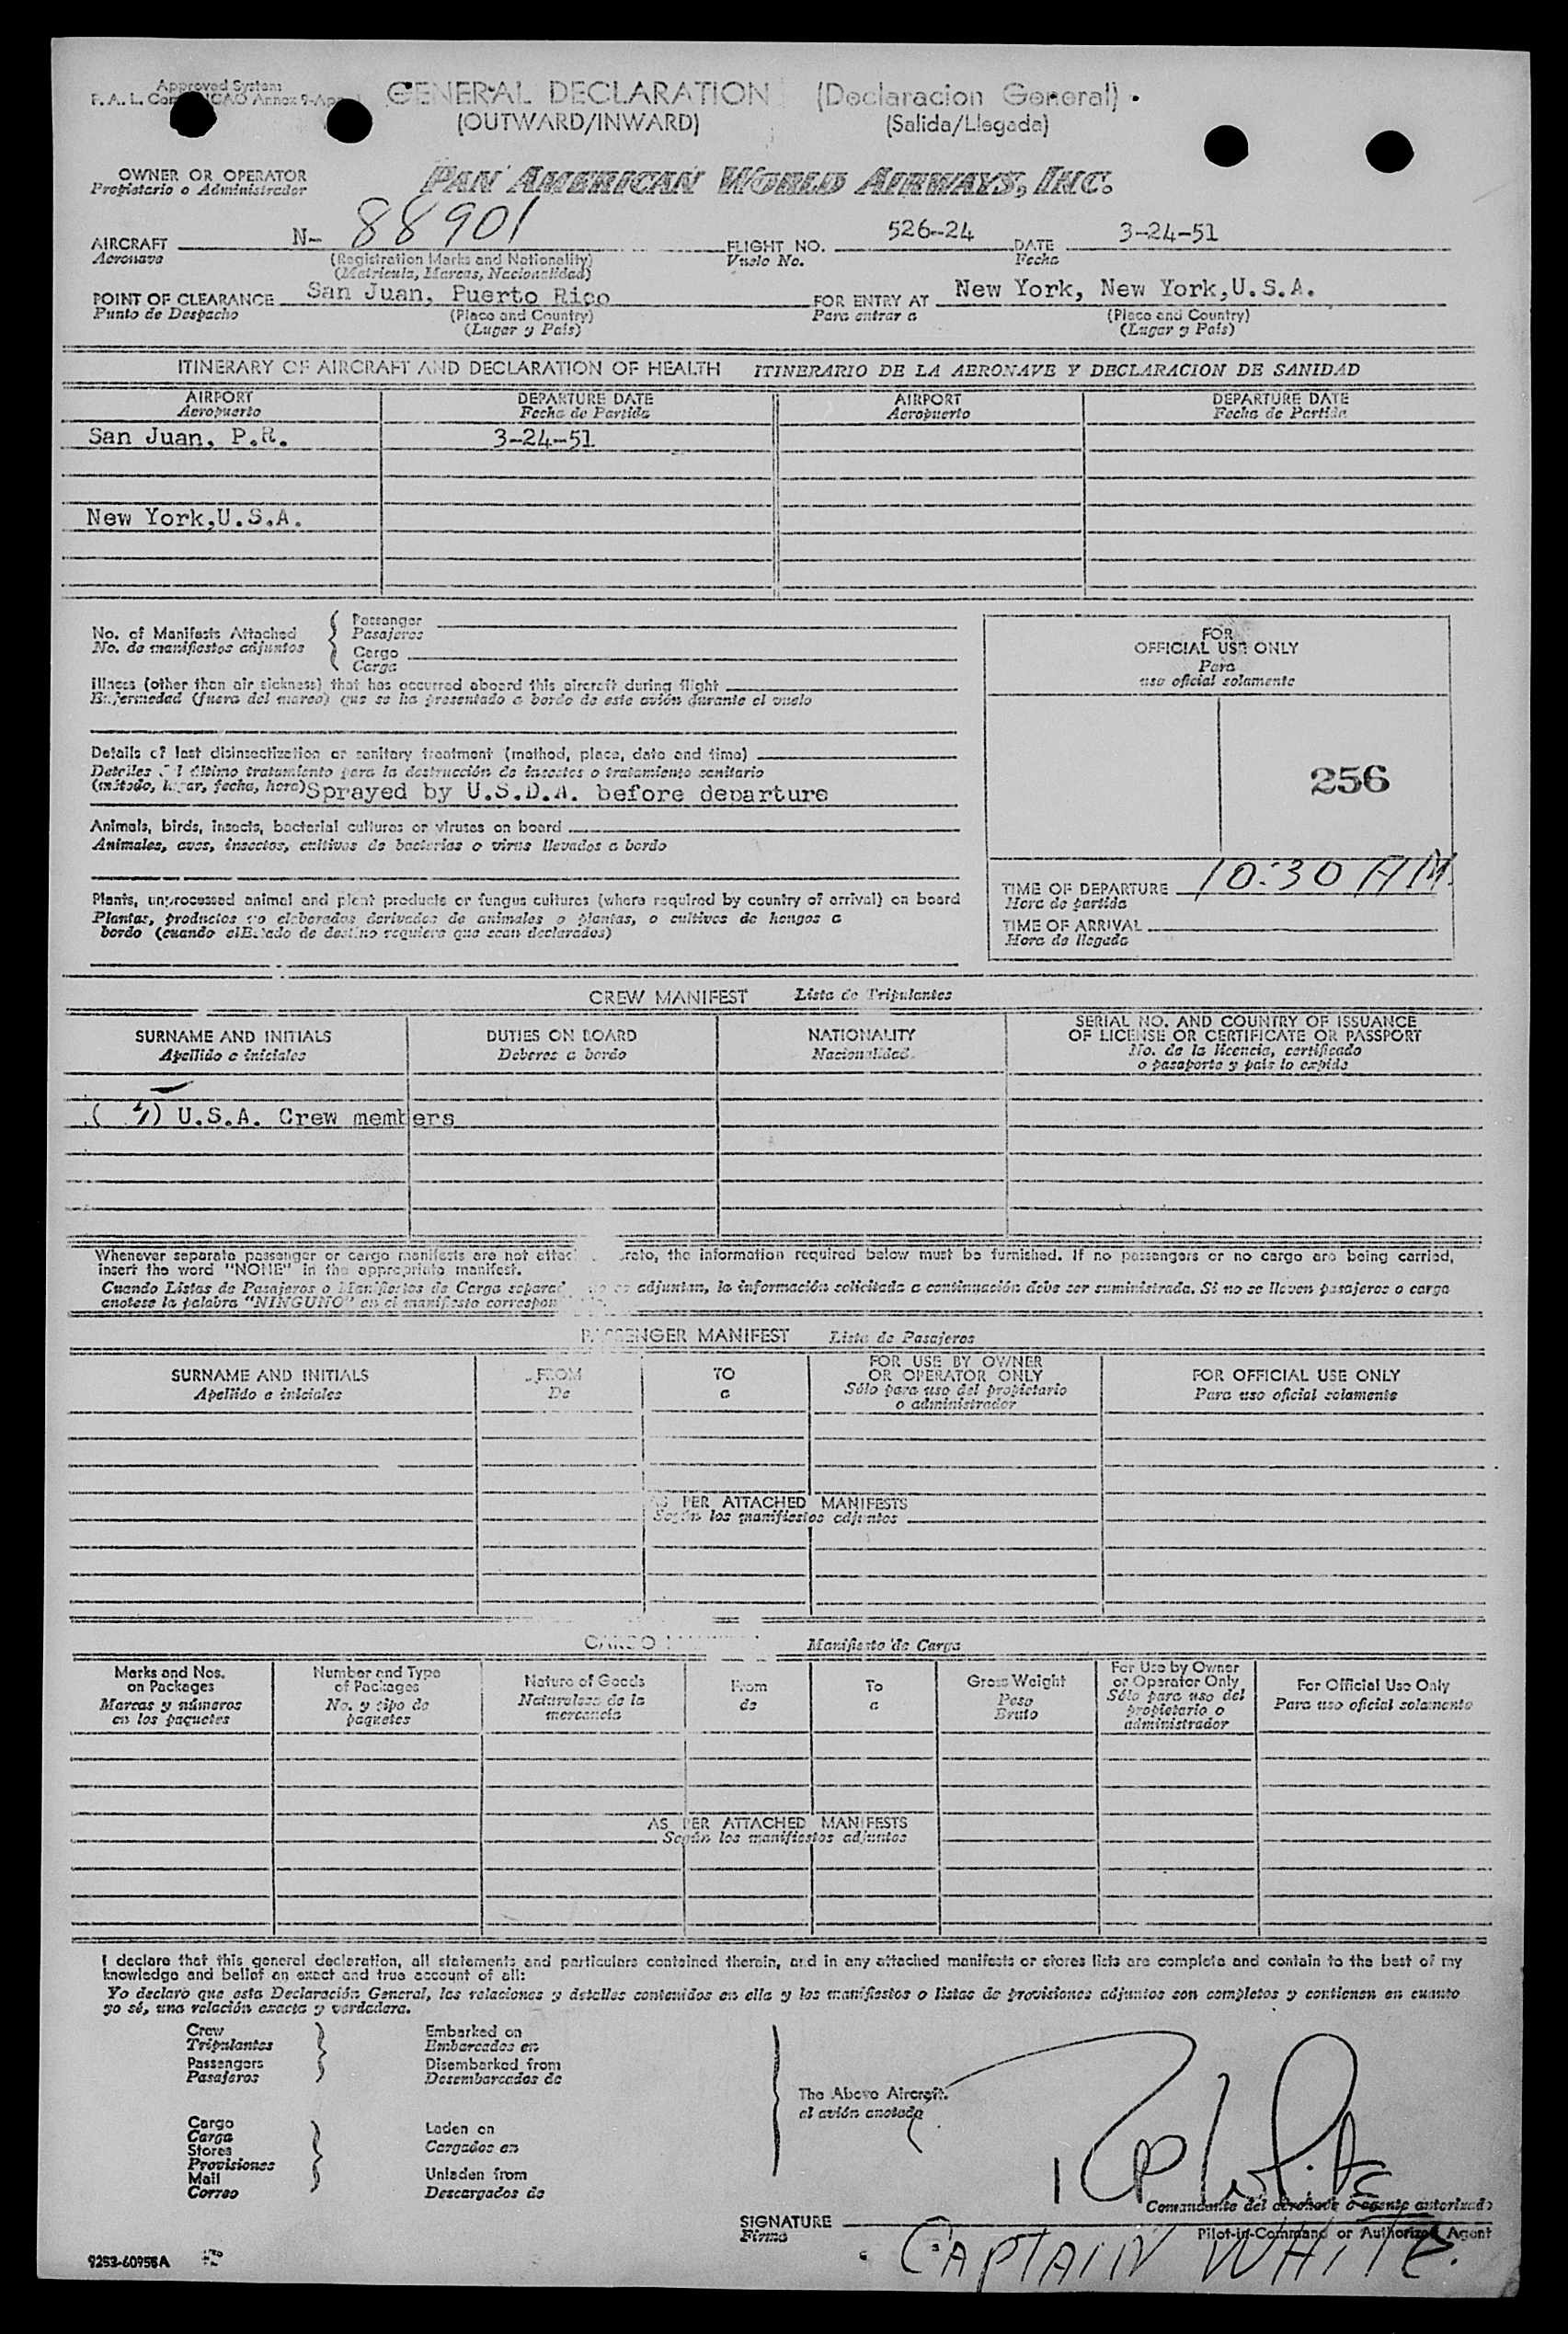 Approved System
F. A. L. ICAO Annex 9-
GENERAL DECLARATION (Declaracion General)
(OUTWARD/INWARD) (Salida/Llegada)
OWNER OR OPERATOR
Propietario o Administrador
PAN AMERICAN WORLD AIRWAYS, INC.
AIRCRAFT N- 88901 FLIGHT NO. 526-24 DATE 3-24-51
Aeronave (Registration Marks and Nationality) Vuelo No. Fecha
(Matricula, Marcas, Nacionalidad)
POINT OF CLEARANCE San Juan, Puerto Rico FOR ENTRY AT New York, New York,U.S.A.
Punto de Despacho (Place and Country) Para entrar a (Place and Country)
(Lugar y País) (Lugar y País)
ITINERARY OF AIRCRAFT AND DECLARATION OF HEALTH ITINERARIO DE LA AERONAVE Y DECLARACION DE SANIDAD
AIRPORT DEPARTURE DATE AIRPORT DEPARTURE DATE
Aeropuerto Fecha de Partida Aeropuerto Fecha de Partida
San Juan, P.R. 3-24-51
New York,U.S.A.
No. of Manifests Attached
No. de manifiestos adjuntos
Passenger
Pasajeros
Cargo
Carga
Illness (other than air sickness) that has occurred aboard this aircraft during flight
Enfermedad (fuera del mareo) que se ha presentado a bordo de este avión durante el vuelo
Details of last disinsectization or sanitary treatment (method, place, date and time)
Detalles último tratamiento para la destrucción de insectos o tratamiento sanitario
(método, lugar, fecha, hora) Sprayed by U.S.D.A. before departure
Animals, birds, insects, bacterial cultures or viruses on board
Animales, aves, insectos, cultivos de bacterias o virus llevados a bordo
Plants, unprocessed animal and plant products or fungus cultures (where required by country of arrival) on board
Plantas, productos no elaborados derivados de animales o plantas, o cultivos de hongos a
bordo (cuando el Estado de destino requiera que sean declarados)
FOR
OFFICIAL USE ONLY
Para
uso oficial solamente
256
TIME OF DEPARTURE 10:30 AM.
Hora de partida
TIME OF ARRIVAL
Hora de llegada
CREW MANIFEST Lista de Tripulantes
SURNAME AND INITIALS DUTIES ON BOARD NATIONALITY SERIAL NO. AND COUNTRY OF ISSUANCE
OF LICENSE OR CERTIFICATE OR PASSPORT
Apellido e iniciales Deberes a bordo Nacionalidad No. de la licencia, certificado
o pasaporte y país lo expide
( ) U.S.A. Crew members
Whenever separate passenger or cargo manifests are not , the information required below must be furnished. If no passengers or no cargo are being carried,
insert the word "NONE" in the appropriate manifest.
Cuando Listas de Pasajeros o Manifiestos de Carga adjuntan, la información solicitada a continuación debe ser suministrada. Si no se llevan pasajeros o carga
anotese la palabra "NINGUNO" en el manifiesto
PASSENGER MANIFEST Lista de Pasajeros
SURNAME AND INITIALS FROM TO FOR USE BY OWNER
OR OPERATOR ONLY FOR OFFICIAL USE ONLY
Apellido e iniciales De a Sólo para uso del propietario
o administrador Para uso oficial solamente
AS PER ATTACHED MANIFESTS
Según los manifiestos adjuntos
CARGO Manifiesto de Carga
Marks and Nos.
on Packages
Marcas y números
en los paquetes
Number and Type
of Packages
No. y tipo de
paquetes
Nature of Goods
Naturaleza de la
mercancía
From
de
To
a
Gross Weight
Peso
Bruto
For Use by Owner
or Operator Only
Sólo para uso del
propietario o
administrador
For Official Use Only
Para uso oficial solamente
AS PER ATTACHED MANIFESTS
Según los manifiestos adjuntos
I declare that this general declaration, all statements and particulars contained therein, and in any attached manifests or stores lists are complete and contain to the best of my
knowledge and belief an exact and true account of all:
Yo declaro que esta Declaración General, las relaciones y detalles contenidos en ella y los manifiestos o listas de provisiones adjuntos son completos y contienen en cuanto
yo sé, una relación exacta y verdadera.
Crew
Tripulantes
Passengers
Pasajeros
Embarked on
Embarcados en
Disembarked from
Desembarcados de
Cargo
Carga
Stores
Provisiones
Mail
Correo
Laden on
Cargados en
Unladen from
Descargados de
The Above Aircraft.
el avión anotado
Comandante del aeronave o agente autorizado
SIGNATURE
Firma
Pilot-in-Command or Authorized Agent
CAPTAIN WHITE.
9253-60955A